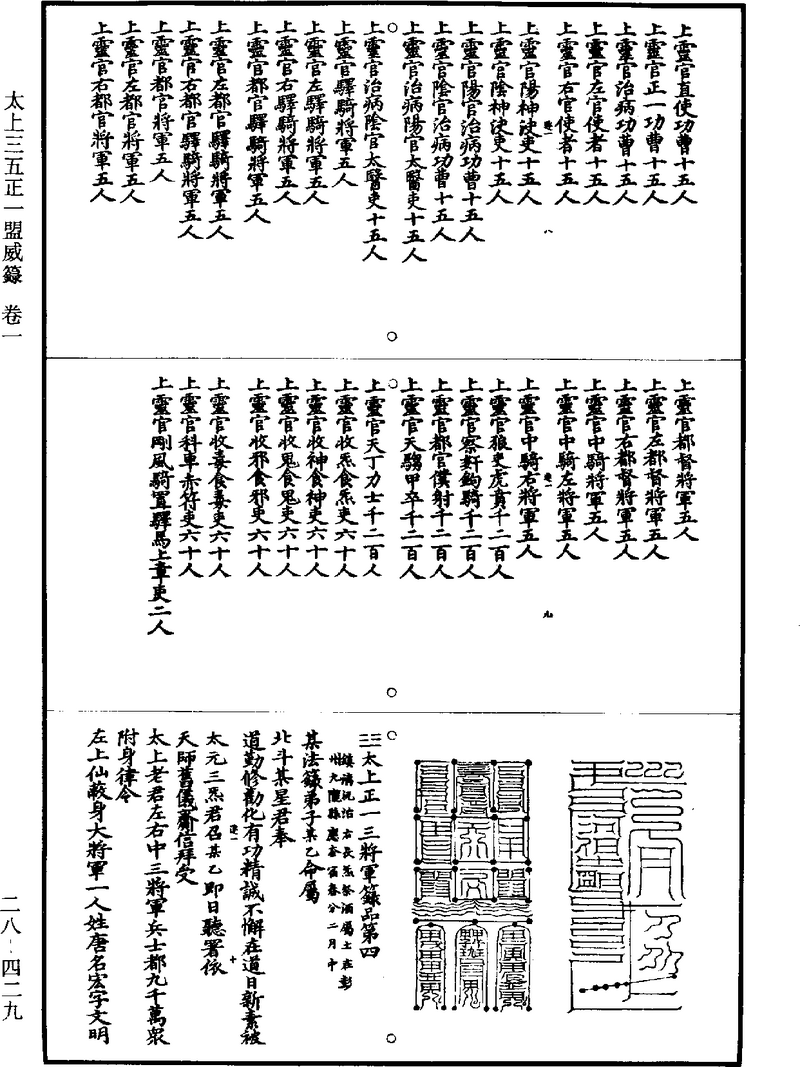 上靈官直使功曹十五人
上靈官正一功曹十五人
上靈官治病功曹十五人
上靈官左官使者十五人
上靈官右官使者十五人
上靈官陽神決吏十五人
上靈官陰神決吏十五人
上靈官陽官治病功曹十五人
上靈官陰官治病功曹十五人
上靈官治病陽官太醫吏十五人
上靈官治病陰官太醫吏十五人
上靈官驛騎將軍五人
上靈官左驛騎將軍五人
上靈官右驛騎將軍五人
上靈官都官驛騎將軍五人
上靈官左都官驛騎將軍五人
上靈官右都官驛騎將軍五人
上靈官都官將軍五人
上靈官左都官將軍五人
上靈官右都官將軍五人
上靈官都督將軍五人
上靈官左都督將軍五人
上靈官右都督將軍五人
上靈官中騎將軍五人
上靈官中騎左將軍五人
上靈官中騎右將軍五人
上靈官狼吏虎賁千二百人
上靈官察奸鉤騎千二百人
上靈官都官僕射千二百人
上靈官天騶甲卒千二百人
上靈官天丁力士千二百人
上靈官收炁食炁吏六十人
上靈官收神食神吏六十人
上靈官收鬼食鬼吏六十人
上靈官收邪食邪吏六十人
上靈官收毒食毒吏六十人
上靈官科車赤符吏六十人
上靈官剛風騎置驛馬上章吏二人
太上正一三將軍籙品第四
某法籙弟子某乙命屬
北斗某星君奉
道勤修勸化有功精誠不懈在道日新素被
太元三炁君召某乙即日聽署依
天師舊儀齋信拜受
太上老君左右中三將軍兵士都九千萬衆
附身律令
左上仙㪍身大將軍一人姓唐名宏字文明
太上三五正一盟威籙 卷一
二八－四二九